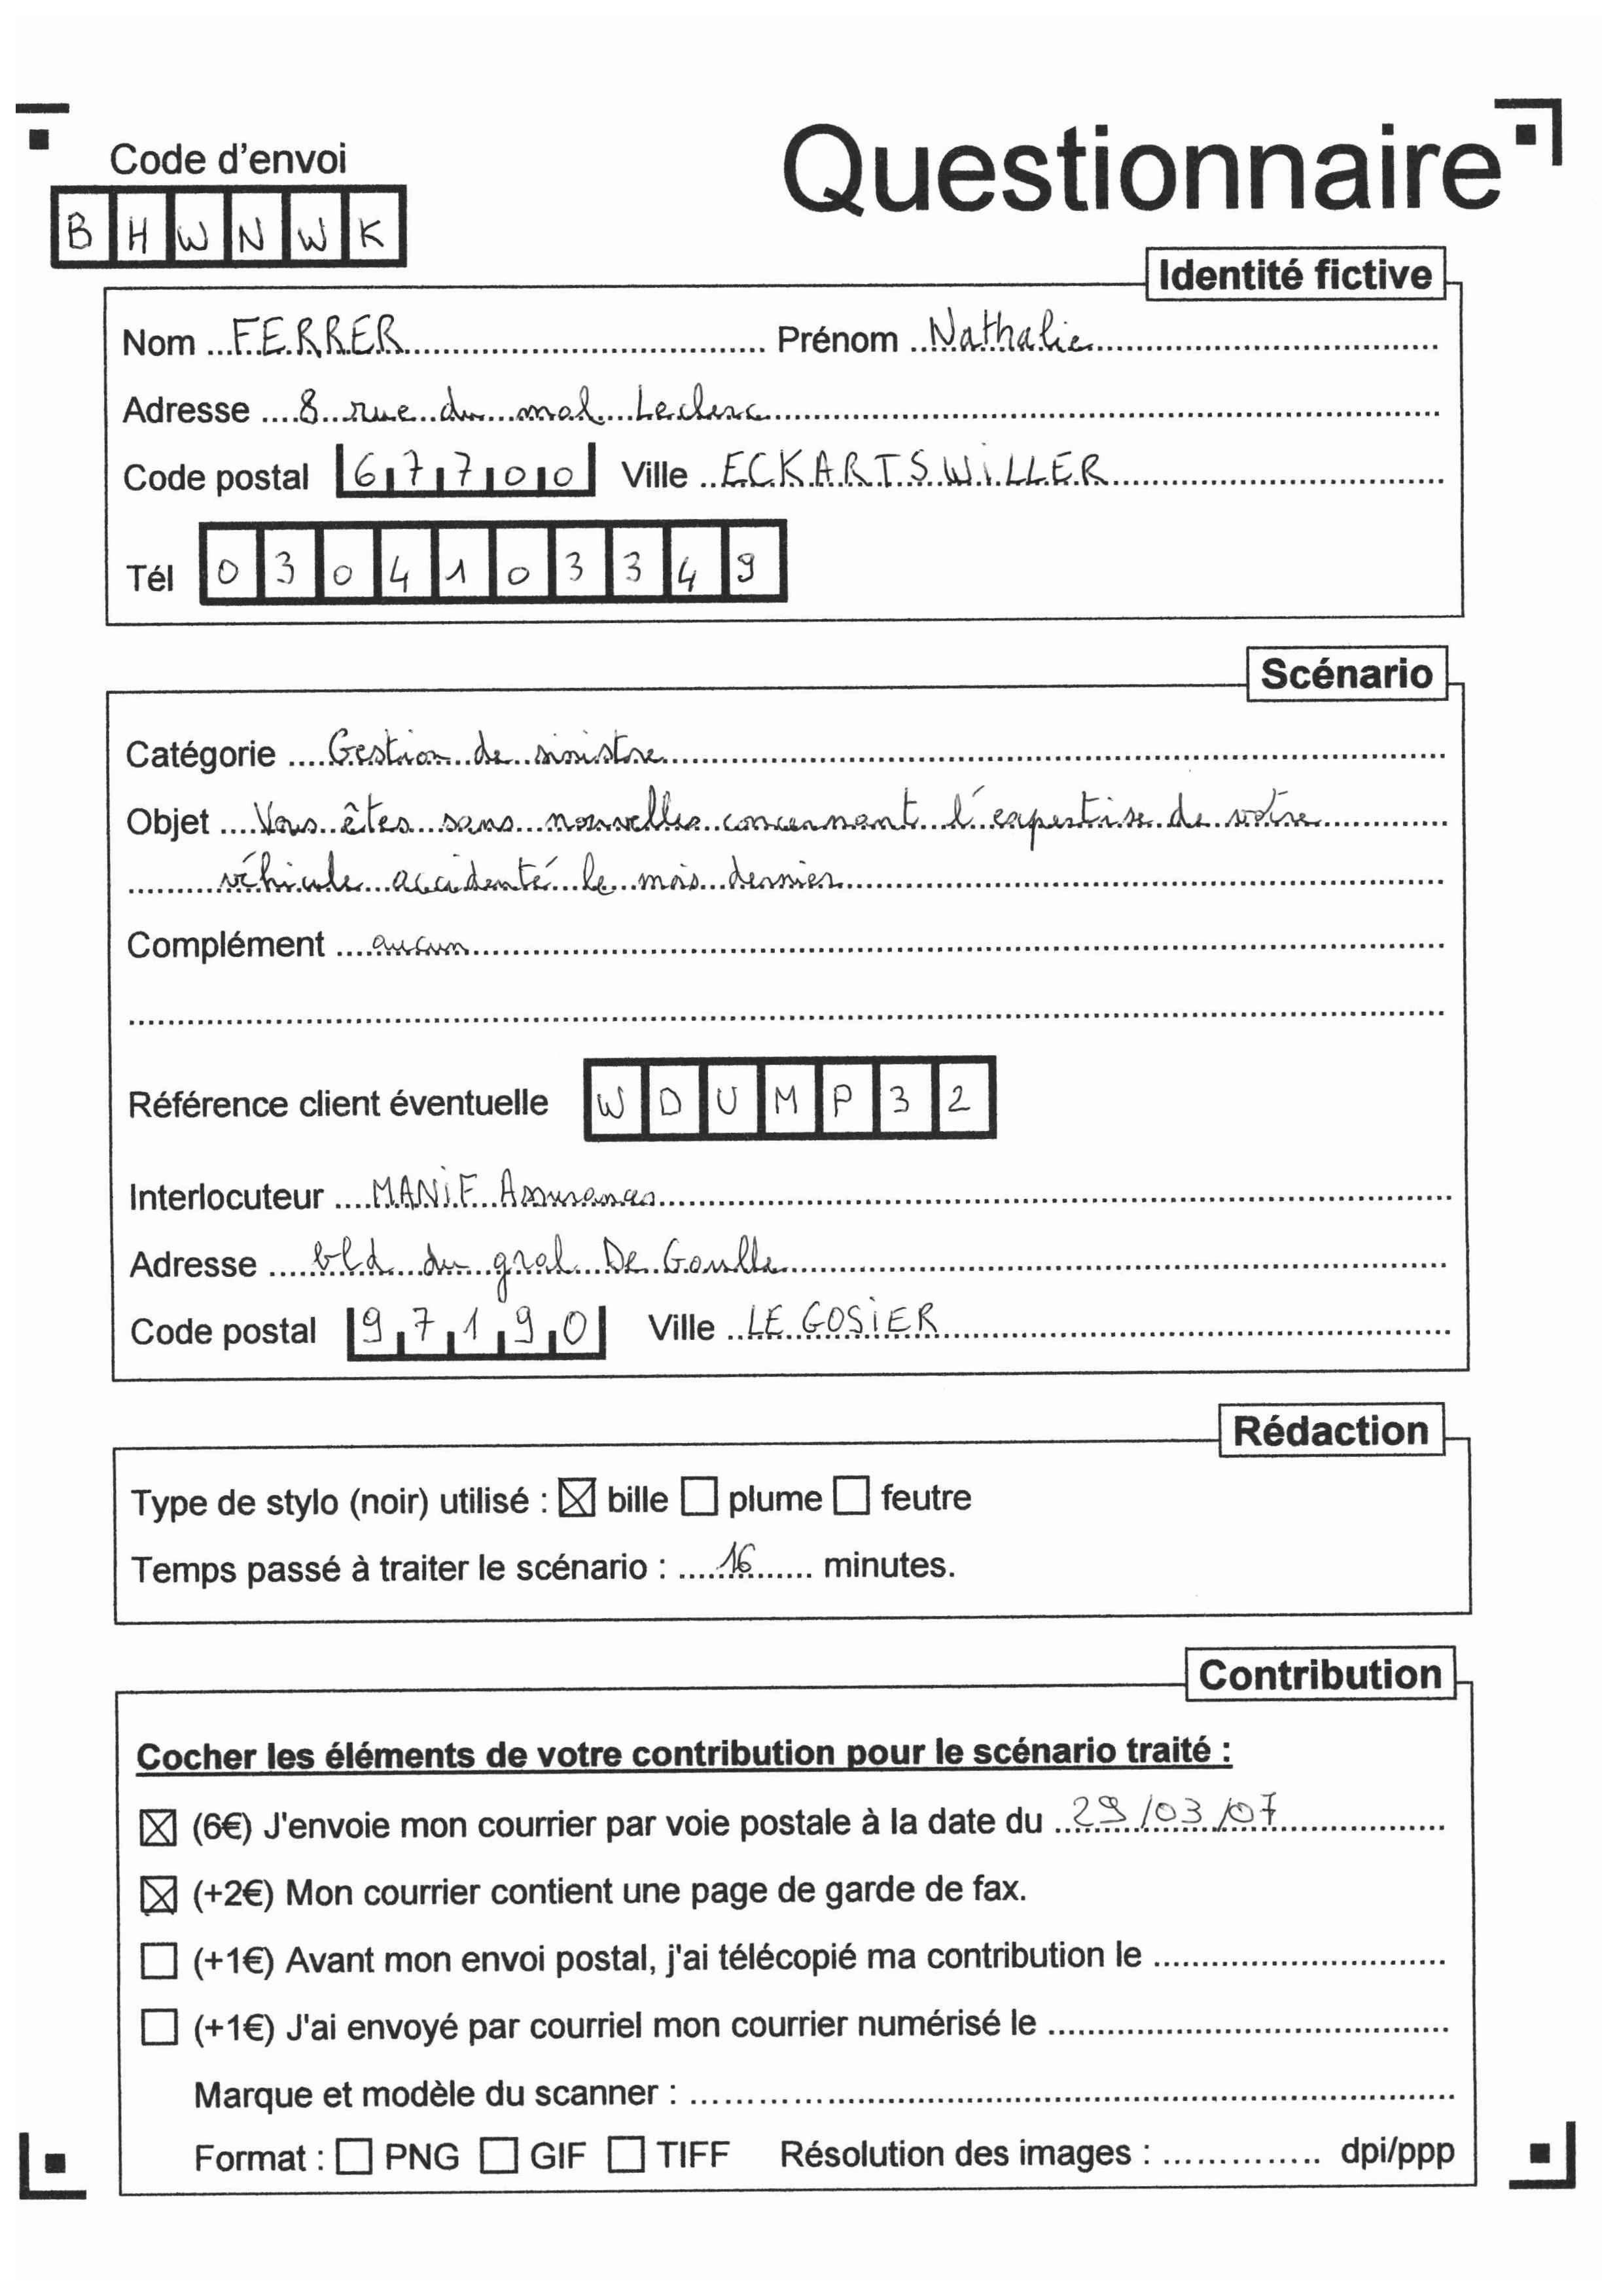 Code d'envoi
Questionnaire
BHWNWK
Identité fictive
Nom FERRER Prénom Nathalie
Adresse 8 rue du mal Leclerc
Code postal 67700 Ville ECKARTSWiLLER
Tél 0304103349
Scénario
Catégorie Gestion de sinistre
Objet Vous êtes sans nouvelles concernant l'expertise de votre
véhicule accidenté le mois dernier
Complément aucun
Référence client éventuelle WDUMP32
Interlocuteur MANiF Assurances
Adresse bld du gral De Gaulle
Code postal 97190 Ville LE GOSiER
Rédaction
Type de stylo (noir) utilisé : ☒ bille ☐ plume ☐ feutre
Temps passé à traiter le scénario : 16 minutes.
Contribution
Cocher les éléments de votre contribution pour le scénario traité :
☒ (6€) J'envoie mon courrier par voie postale à la date du 29/03/07
☒ (+2€) Mon courrier contient une page de garde de fax.
☐ (+1€) Avant mon envoi postal, j'ai télécopié ma contribution le
☐ (+1€) J'ai envoyé par courriel mon courrier numérisé le
Marque et modèle du scanner :
Format : ☐ PNG ☐ GIF ☐ TIFF Résolution des images : dpi/ppp